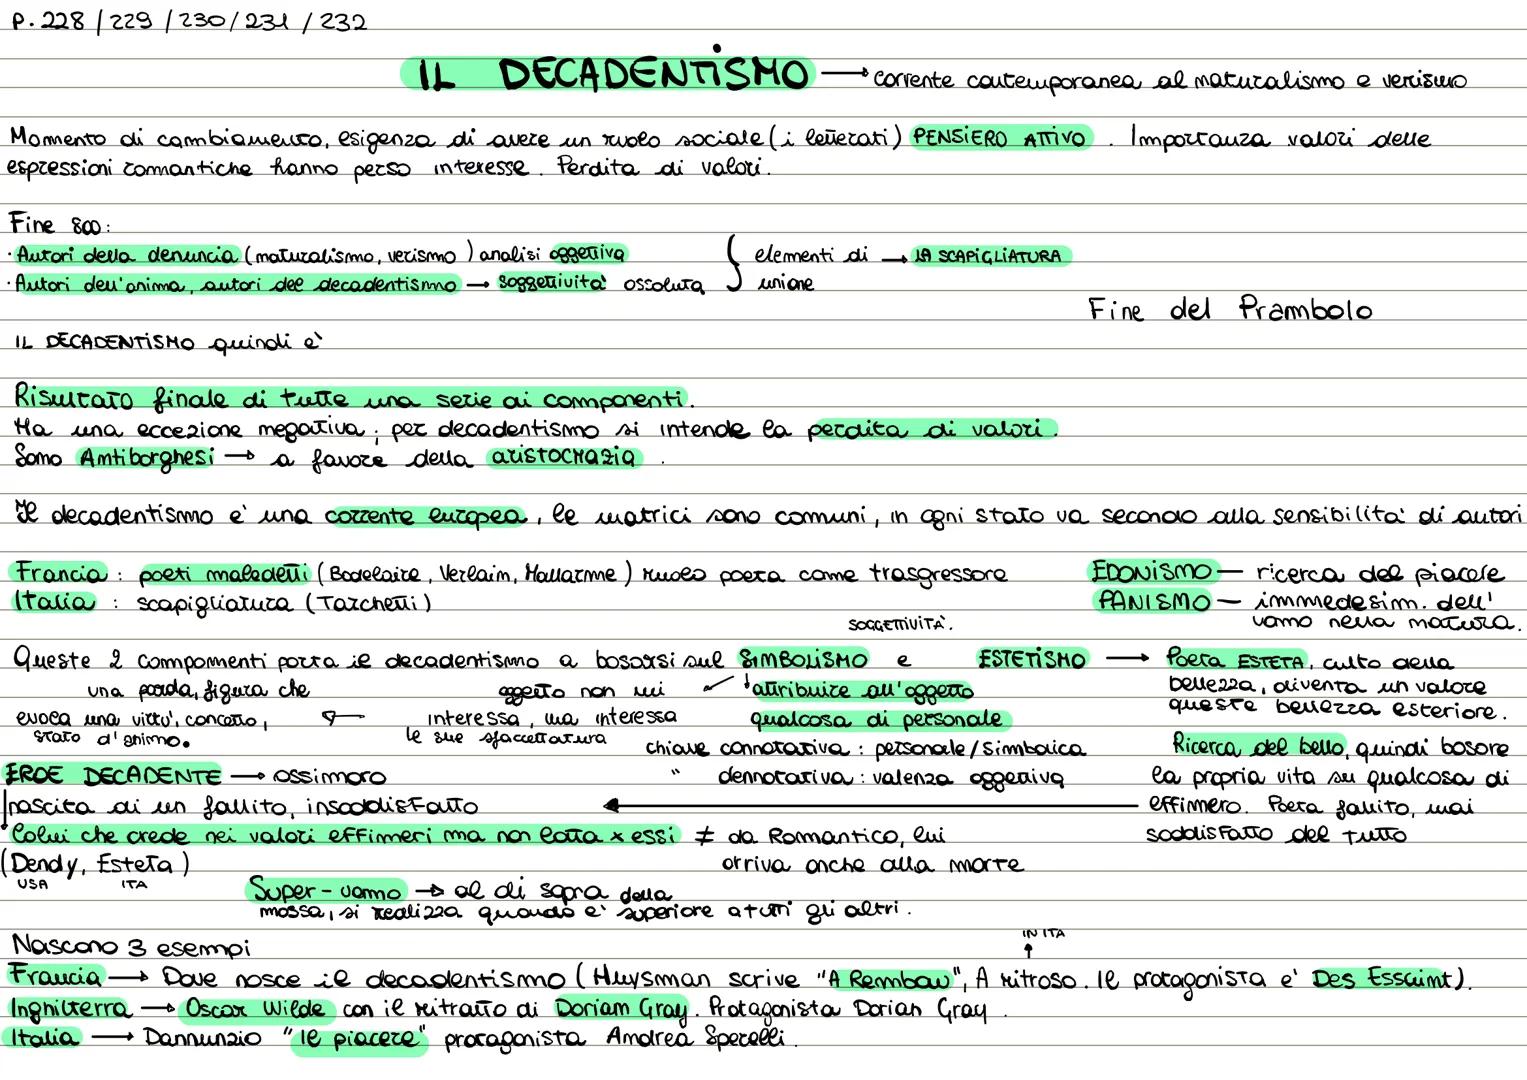 P. 228 / 229 / 230 / 231 / 232
IL DECADENTISMO → corrente contemporanea al naturalismo e verismo
Momento di cambiamento, esigenza di avere un ruolo sociale (i letterati) PENSIERO ATTIVO. Importanza valori delle
espressioni romantiche hanno perso interesse. Perdita di valori.
Fine 800:
· Autori della denuncia (naturalismo, verismo) analisi oggettiva } elementi di → LA SCAPIGLIATURA
· Autori dell'anima, autori del decadentismo → soggettività assoluta } unione
Fine del Prambolo
IL DECADENTISMO quindi è
Risultato finale di tutte una serie di componenti.
Ha una eccezione negativa; per decadentismo si intende la perdita di valori.
Sono Antiborghesi → a favore della aristocrazia.
Il decadentismo è una corrente europea, le matrici sono comuni, in ogni stato va secondo alla sensibilità di autori
Francia : poeti maledetti (Bodelaire, Verlain, Mallarme) ruolo poeta come trasgressore
Italia : scapigliatura (Tarchetti)
EDONISMO — ricerca del piacere
PANISMO — immedesim. dell'
uomo nella natura.
SOGGETTIVITÀ.
Queste 2 componenti porta il decadentismo a basarsi sul SIMBOLISMO e ESTETISMO → Poeta ESTETA, culto della
bellezza, diventa un valore
queste bellezza esteriore.
attribuire all'oggetto
qualcosa di personale
oggetto non mi
interessa, ma interessa
le sue sfaccettatura
una parola, figura che
evoca una virtù, concetto,
stato d'animo.
chiave connotativa : personale/simbolica
" dennotativa : valenza oggettiva
Ricerca del bello, quindi basare
la propria vita su qualcosa di
effimero. Poeta fallito, mai
soddisfatto del tutto
EROE DECADENTE → ossimoro
nascita di un fallito, insoddisfatto
Colui che crede nei valori effimeri ma non lotta x essi ≠ da Romantico, lui
arriva anche alla morte
(Dendy, Esteta)
USA ITA
Super-uomo → al di sopra della
massa, si realizza quando è superiore a tutti gli altri.
Nascono 3 esempi
IN ITA
Francia → Dove nasce il decadentismo (Huysman scrive "A Rembow", A ritroso. Il protagonista è Des Essaint).
Inghilterra → Oscar Wilde con il ritratto di Doriam Gray. Protagonista Dorian Gray.
Italia → Dannunzio "Il piacere" protagonista Andrea Sperelli.